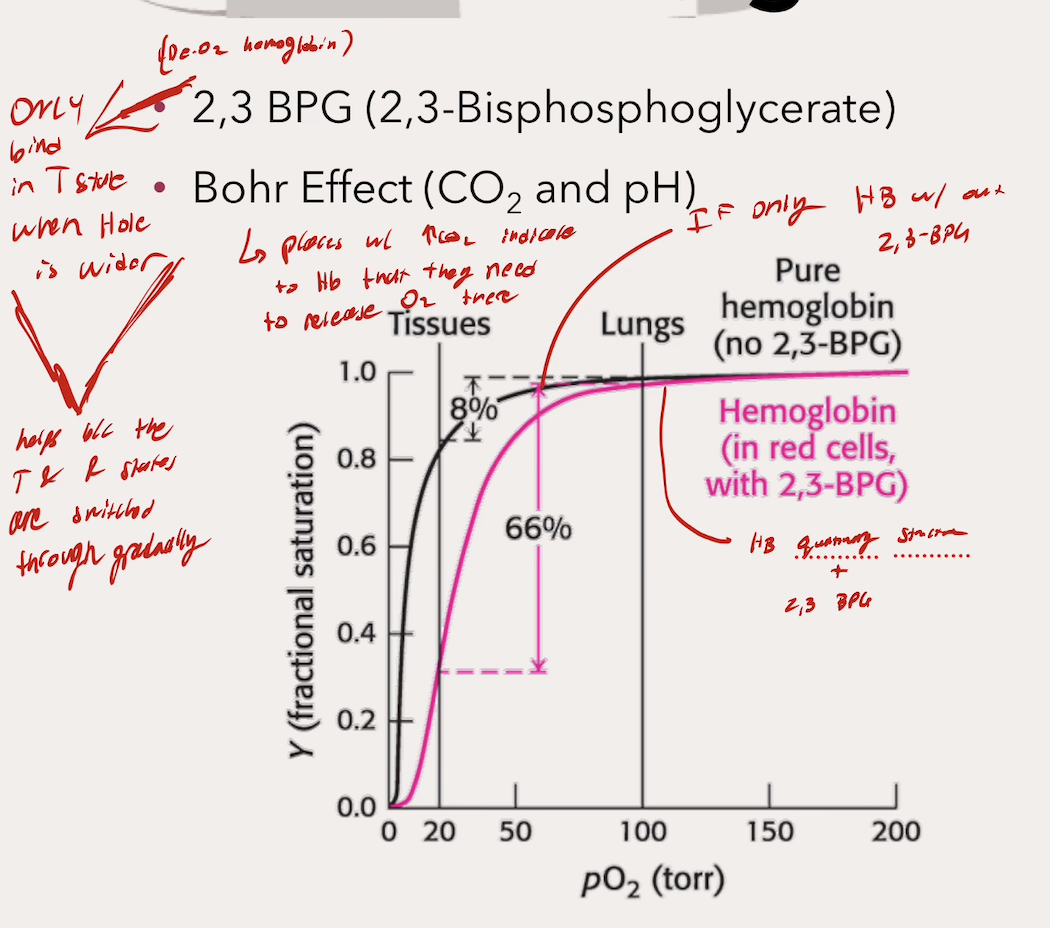 (De-O2 hemoglobin)
• 2,3 BPG (2,3-Bisphosphoglycerate)
ONLY
bind
in T state
when Hole
is wider
• Bohr Effect (CO₂ and pH)
↳ places w/ ↑CO2 indicate
to Hb that they need
to release O2 there
IF only HB w/ out
2,3-BPG
helps b/c the
T & R states
are switched
through gradually
Tissues
Lungs
Pure
hemoglobin
(no 2,3-BPG)
Hemoglobin
(in red cells,
with 2,3-BPG)
HB quaternary structure
+
2,3 BPG
8%
66%
Y (fractional saturation)
1.0
0.8
0.6
0.4
0.2
0.0
0 20 50 100 150 200
pO₂ (torr)